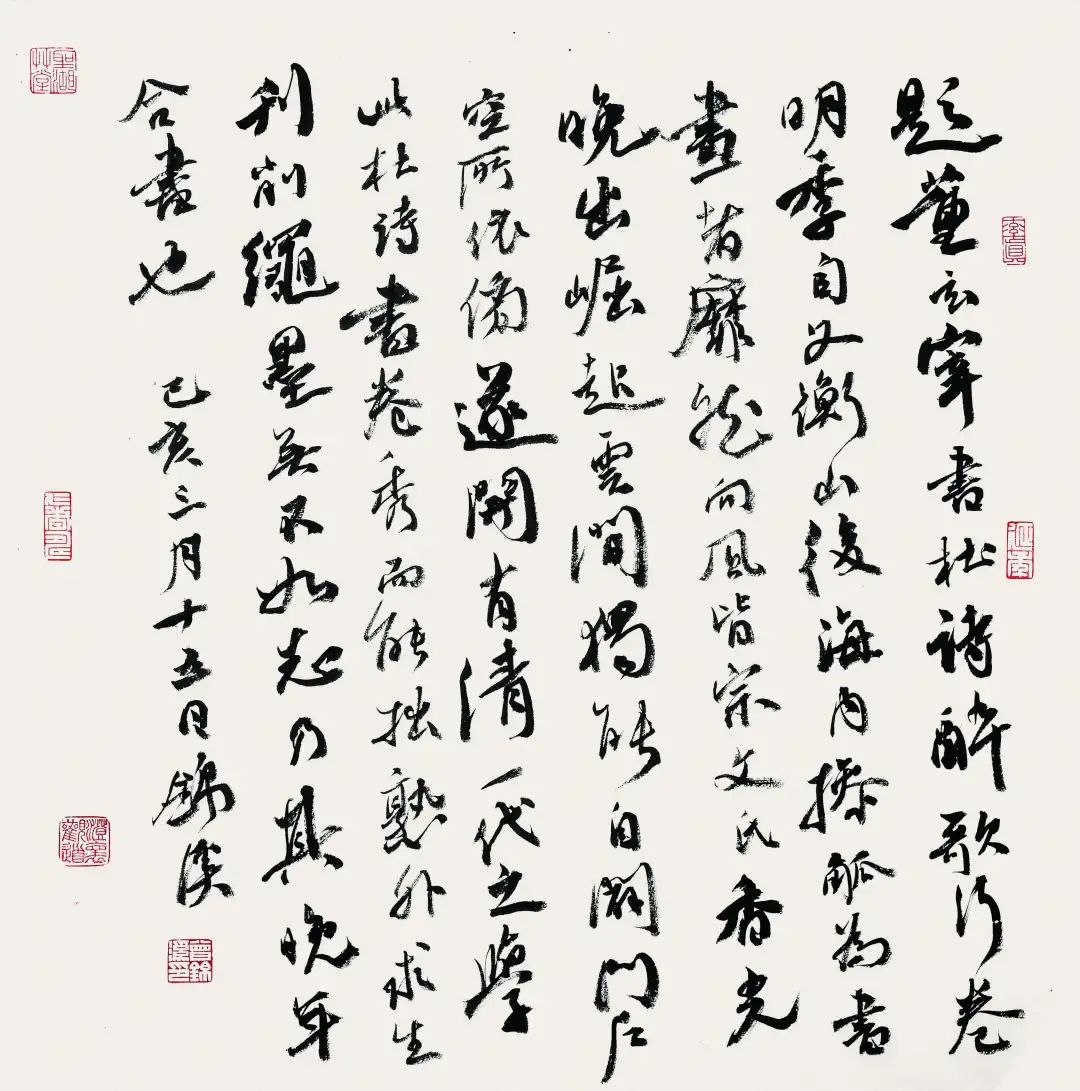 題董玄宰書杜詩醉歌行卷
明季自文衡山後海內操觚為書
畫者靡然向風皆宗文氏香光
晚出崛起雲間獨能自闢門户
空所依傍遂開有清一代之學
此杜詩書卷秀而能拙熟外求生
利削繩墨無不如志乃其晚年
合書也 己亥三月十五日錦溪
曾錦溪印
澄懷觀道